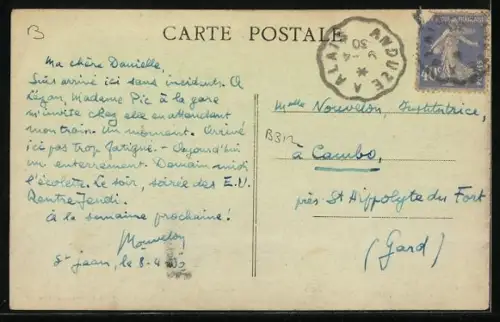 B
CARTE POSTALE
ANDUZE A ALAIS
9-4
30
*
40c
Ma chère Danielle,
Suis arrivé ici sans incidents. A
Lézan, Madame Pic à la gare
m'invite chez elle en attendant
mon train. Un moment. Arrivé
ici pas trop fatigué. - Aujourd'hui
un enterrement. Demain midi
l'écolette. Le soir, soirée des E.U.
Rentre Jeudi.
à la semaine prochaine!
Nouvelon
St Jean, le 8-4
Melle Nouvelon, Institutrice,
B312
à Cambo,
près St Hippolyte du Fort
(Gard)